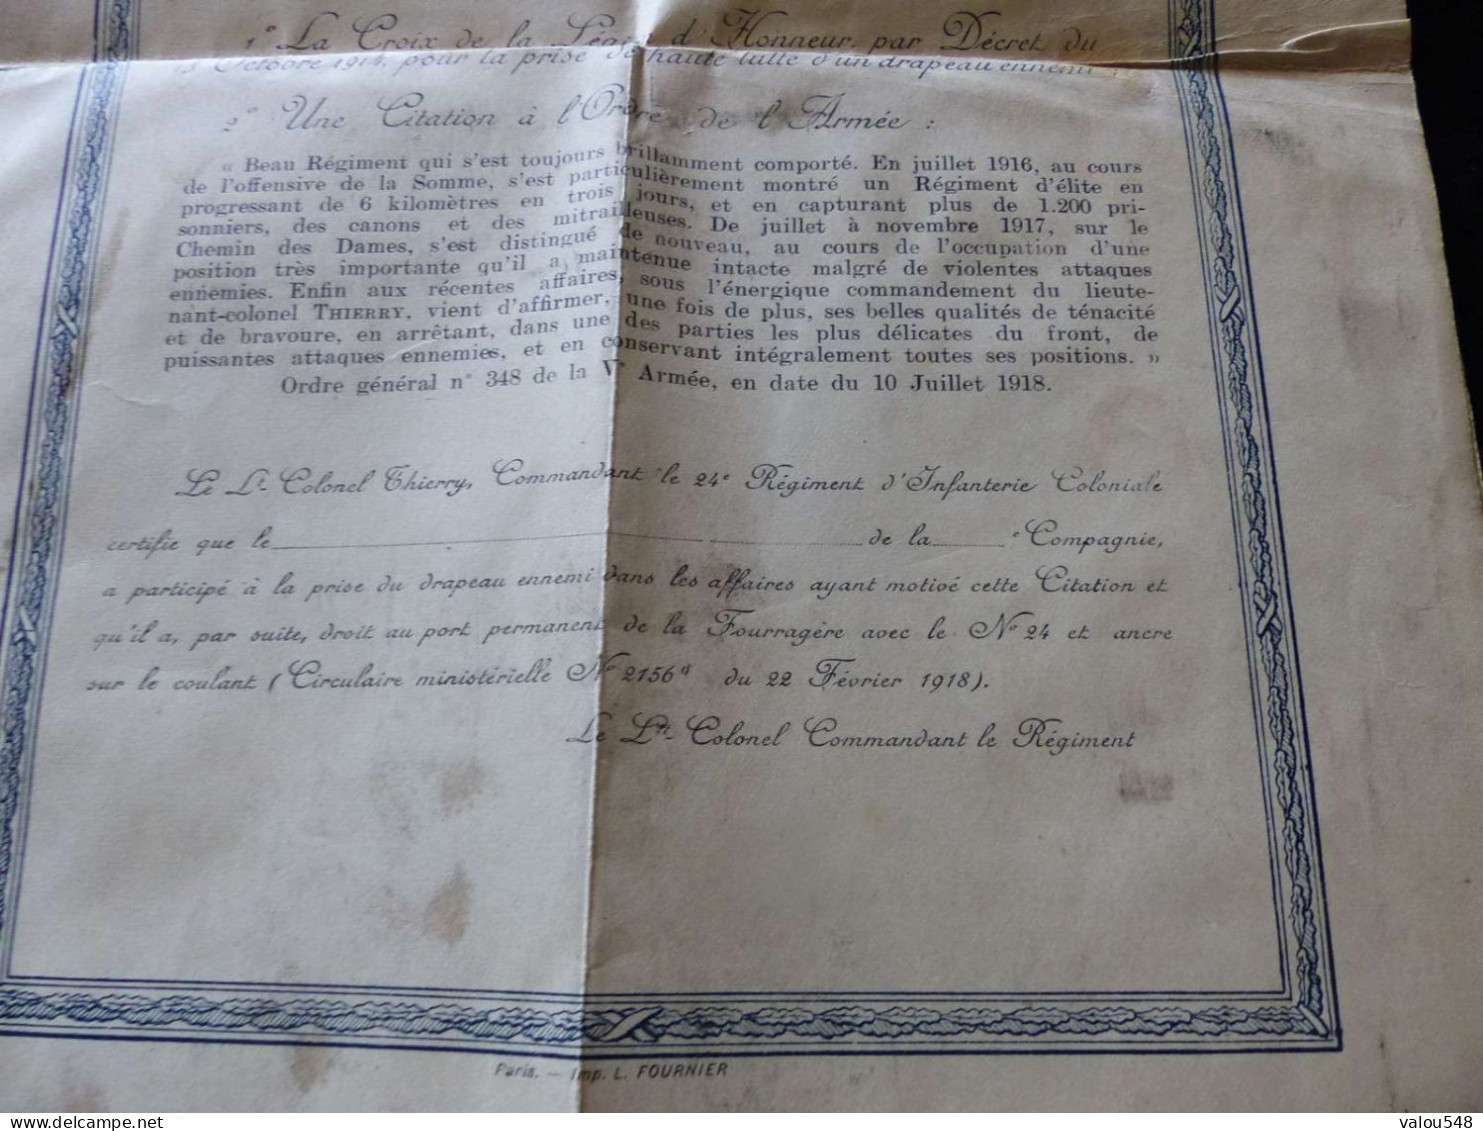 1° La Croix de la Légion d'Honneur, par Décret du
15 Octobre 1914, pour la prise de haute lutte d'un drapeau ennemi.
2° Une Citation à l'Ordre de l'Armée :
« Beau Régiment qui s'est toujours brillamment comporté. En juillet 1916, au cours
de l'offensive de la Somme, s'est particulièrement montré un Régiment d'élite en
progressant de 6 kilomètres en trois jours, et en capturant plus de 1.200 pri-
sonniers, des canons et des mitrailleuses. De juillet à novembre 1917, sur le
Chemin des Dames, s'est distingué de nouveau, au cours de l'occupation d'une
position très importante qu'il a maintenue intacte malgré de violentes attaques
ennemies. Enfin aux récentes affaires, sous l'énergique commandement du lieute-
nant-colonel THIERRY, vient d'affirmer, une fois de plus, ses belles qualités de ténacité
et de bravoure, en arrêtant, dans une des parties les plus délicates du front, de
puissantes attaques ennemies, et en conservant intégralement toutes ses positions. »
Ordre général n° 348 de la Ve Armée, en date du 10 Juillet 1918.
Le Lt-Colonel Thierry, Commandant le 24e Régiment d'Infanterie Coloniale
certifie que le de la e Compagnie,
a participé à la prise du drapeau ennemi dans les affaires ayant motivé cette Citation et
qu'il a, par suite, droit au port permanent de la Fourragère avec le N° 24 et ancre
sur le coulant (Circulaire ministérielle N° 2156d du 22 Février 1918).
Le Lt-Colonel Commandant le Régiment
Paris. — Imp. L. FOURNIER
valou548